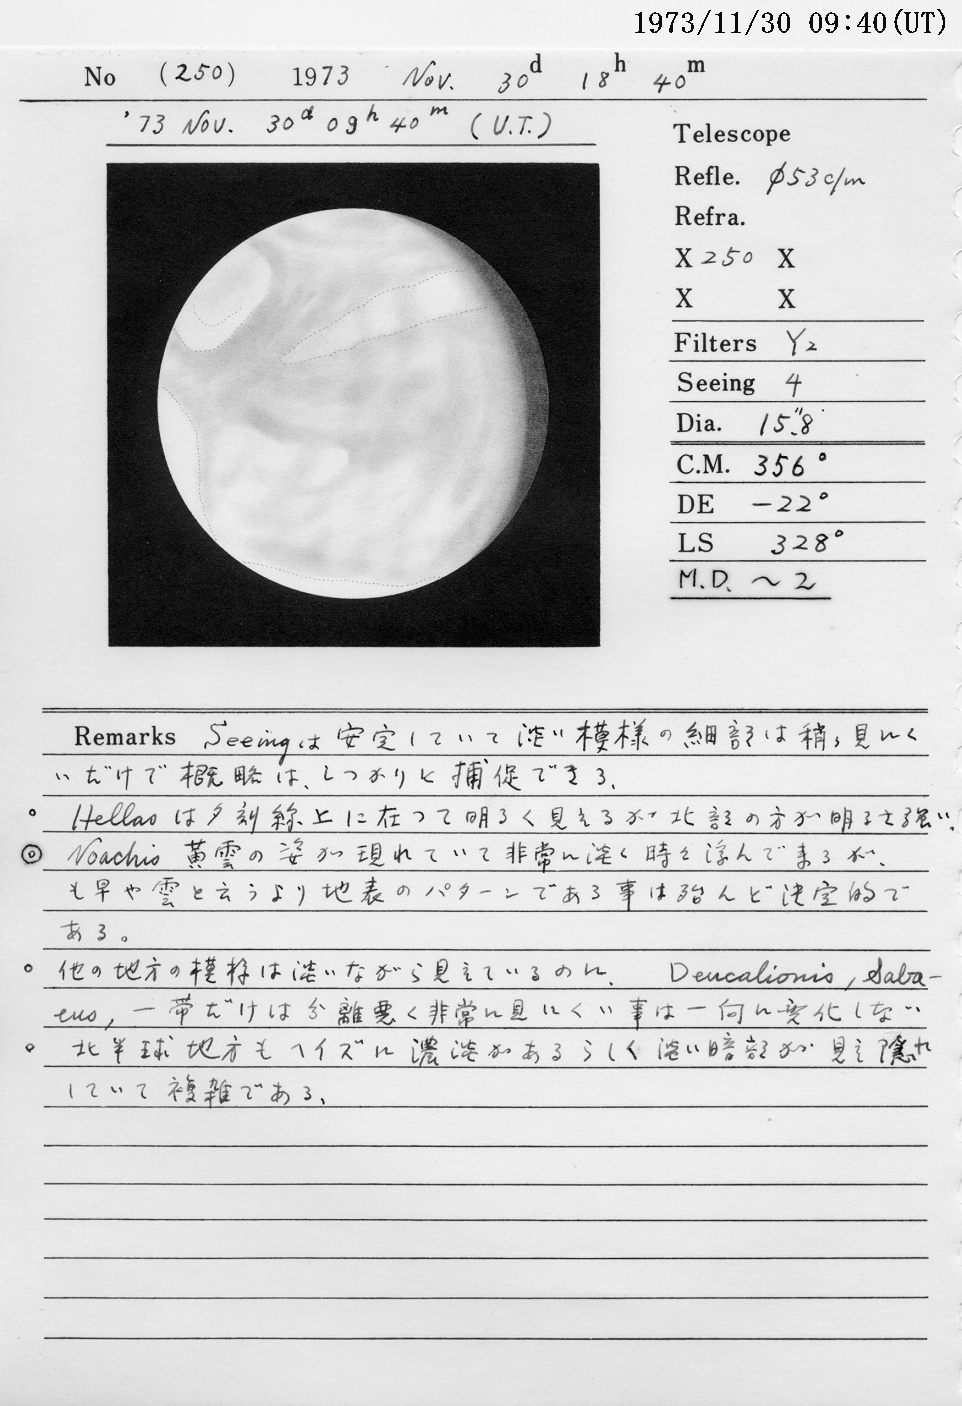 1973/11/30 09:40(UT)
No (250) 1973 Nov. 30d 18h 40m
'73 Nov. 30d 09h 40m (U.T.)
Telescope
Refle. φ53c/m
Refra.
X 250 X
X X
Filters Y2
Seeing 4
Dia. 15.″8
C.M. 356°
DE −22°
LS 328°
M.D. ~ 2
Remarks Seeingは安定していて淡い模様の細部は稍々見にく
いだけで概略は、しっかりと捕促できる、
。Hellasは夕刻線上に在って明るく見えるが北部の方が明るさ強い、
◎ Noachis 黄雲の姿が現れていて非常に淡く時々浮んでまるが、
も早や雲と云うより地表のパターンである事は殆んど決定的で
ある。
。他の地方の模様は淡いながら見えているのに、 Deucalionis, Saba-
eus, 一帯だけは分離悪く非常に見にくい事は一向に変化しない
。北半球地方もヘイズに濃淡があるらしく淡い暗部が見え隠れ
していて複雑である、